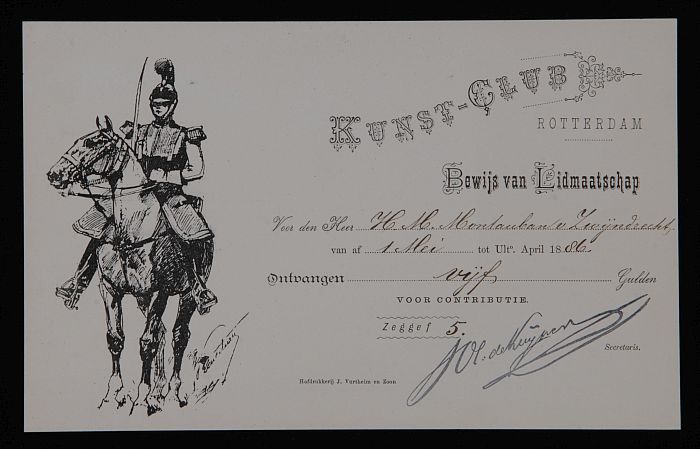 KUNST-CLUB
ROTTERDAM
Bewijs van Lidmaatschap
Voor den Heer H. M. Montauban v. Zwijndrecht,
van af 1 Mei tot Ulto. April 1886.
Ontvangen vijf Gulden
VOOR CONTRIBUTIE.
Zegge f 5.
Secretaris.
Hofdrukkerij J. Vürtheim en Zoon